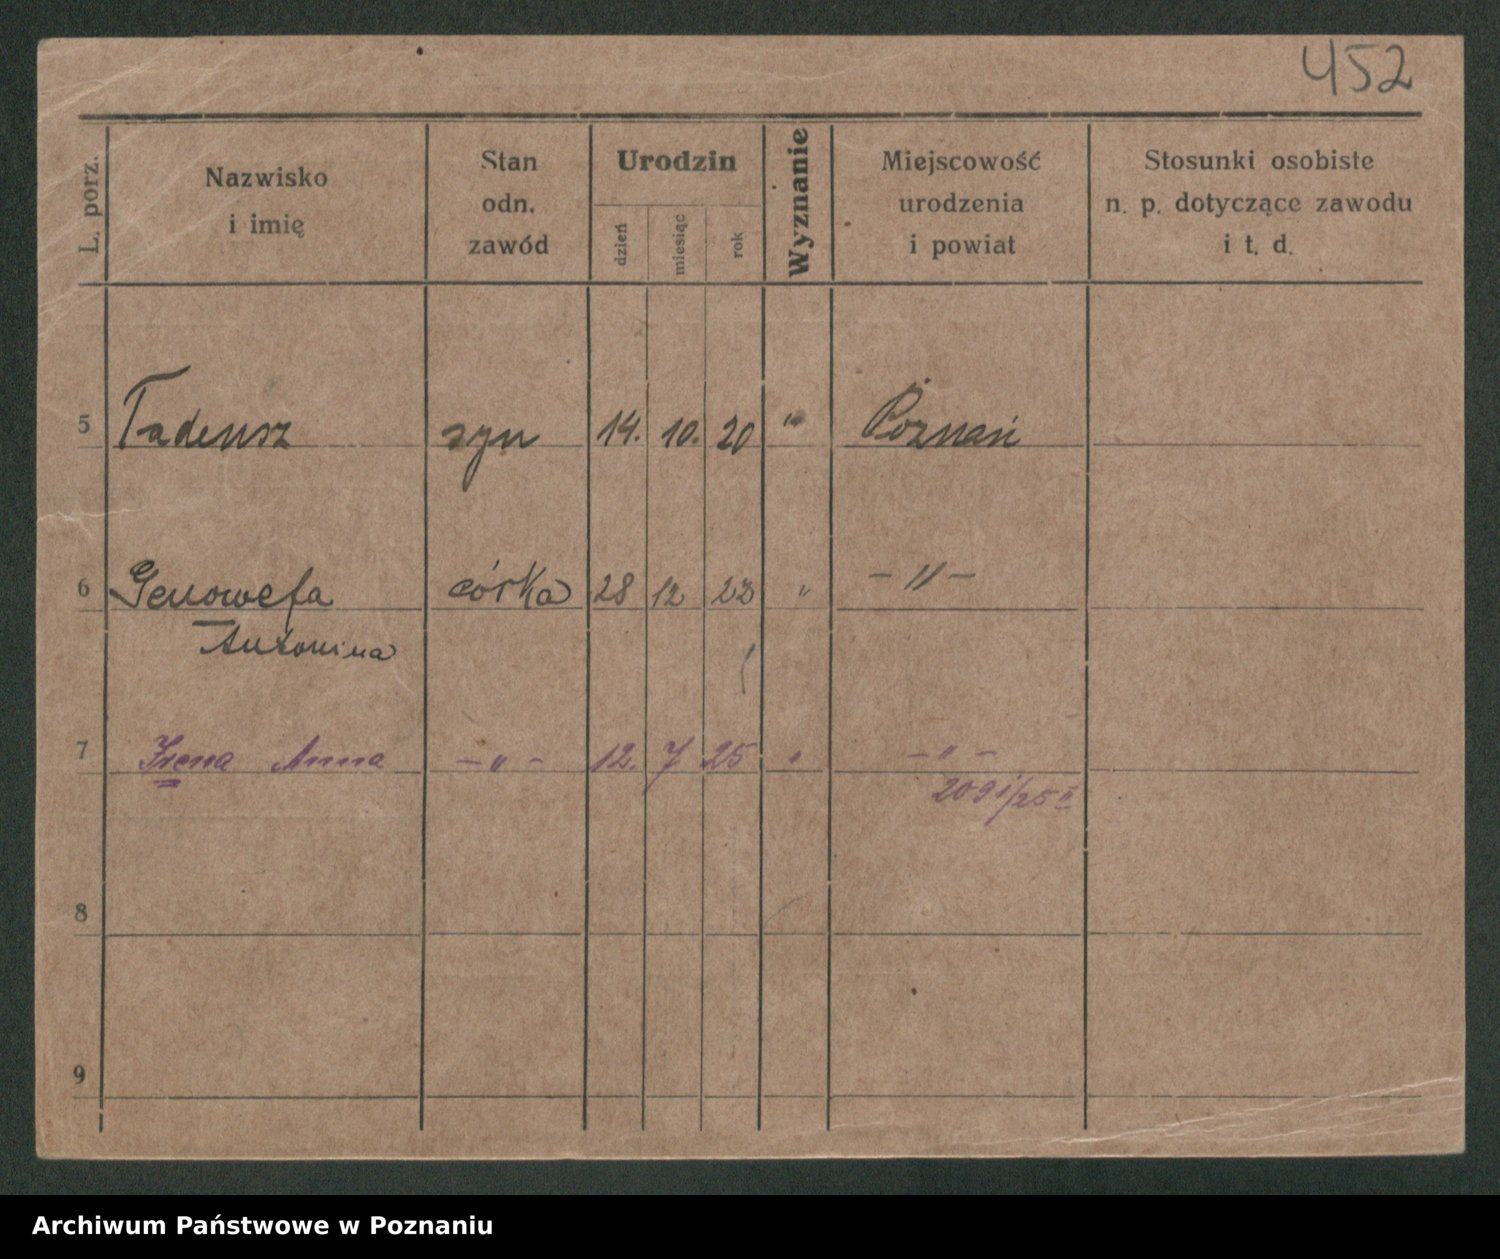 452
L. porz.
Nazwisko
i imię
Stan
odn.
zawód
Urodzin
dzień
miesiąc
rok
Wyznanie
Miejscowość
urodzenia
i powiat
Stosunki osobiste
n. p. dotyczące zawodu
i t. d.
5 Tadeusz syn 14. 10. 20 " Poznań
6 Genowefa córka 28 12 23 " -"-
Antonina
7 Irena Anna -"- 12. 7 25 " -"-
2091/25 II
8
9
Archiwum Państwowe w Poznaniu